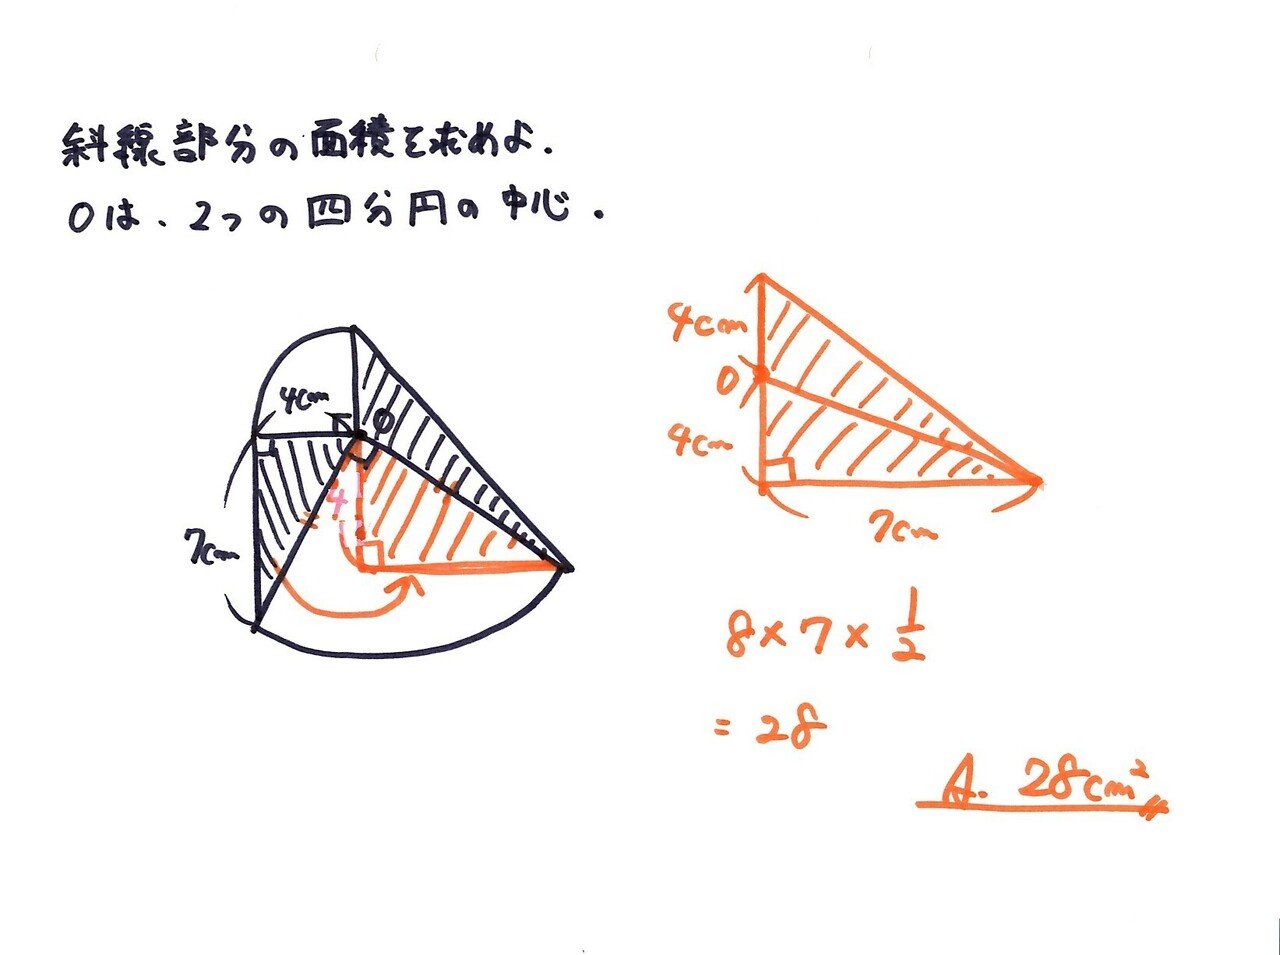 斜線部分の面積を求めよ.
Oは、2つの四分円の中心.
4cm
O
7cm
4
4cm
O
4cm
7cm
8×7×1/2
=28
A. 28cm²